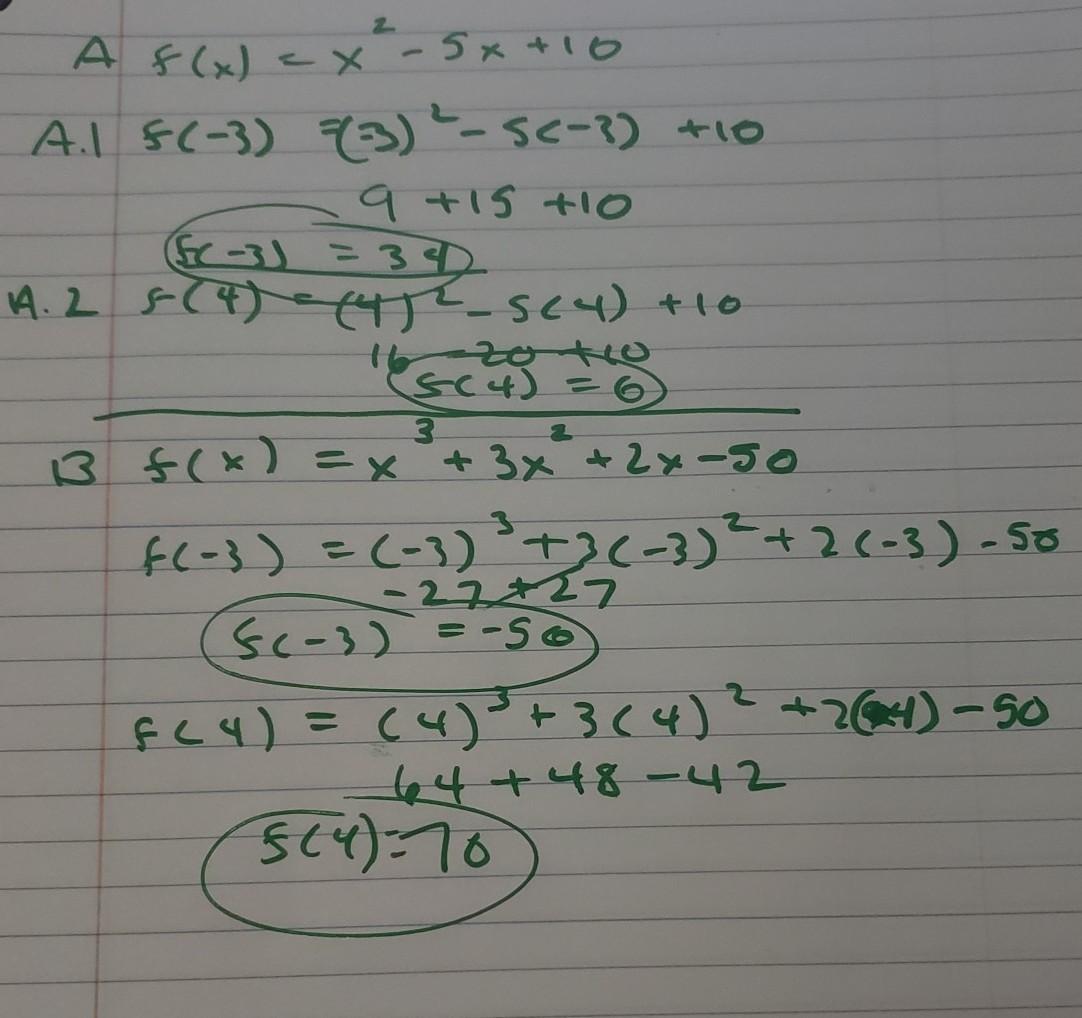 A f(x) = x² - 5x + 10
A.1 f(-3) = (-3)² - 5(-3) + 10
9 + 15 + 10
f(-3) = 34
A.2 f(4) = (4)² - 5(4) + 10
16 - 20 + 10
f(4) = 6
B f(x) = x³ + 3x² + 2x - 50
f(-3) = (-3)³ + 3(-3)² + 2(-3) - 50
-27 + 27
f(-3) = -56
f(4) = (4)³ + 3(4)² + 2(4) - 50
64 + 48 - 42
f(4) = 70